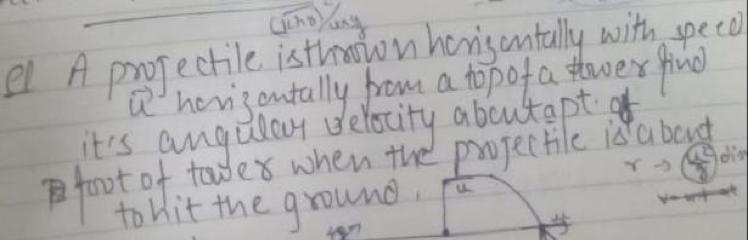 Q A projectile is thrown horizontally with speed
u horizontally from a top of a tower find
it's angular velocity about a pt. of
foot of tower when the projectile is about
to hit the ground.
u